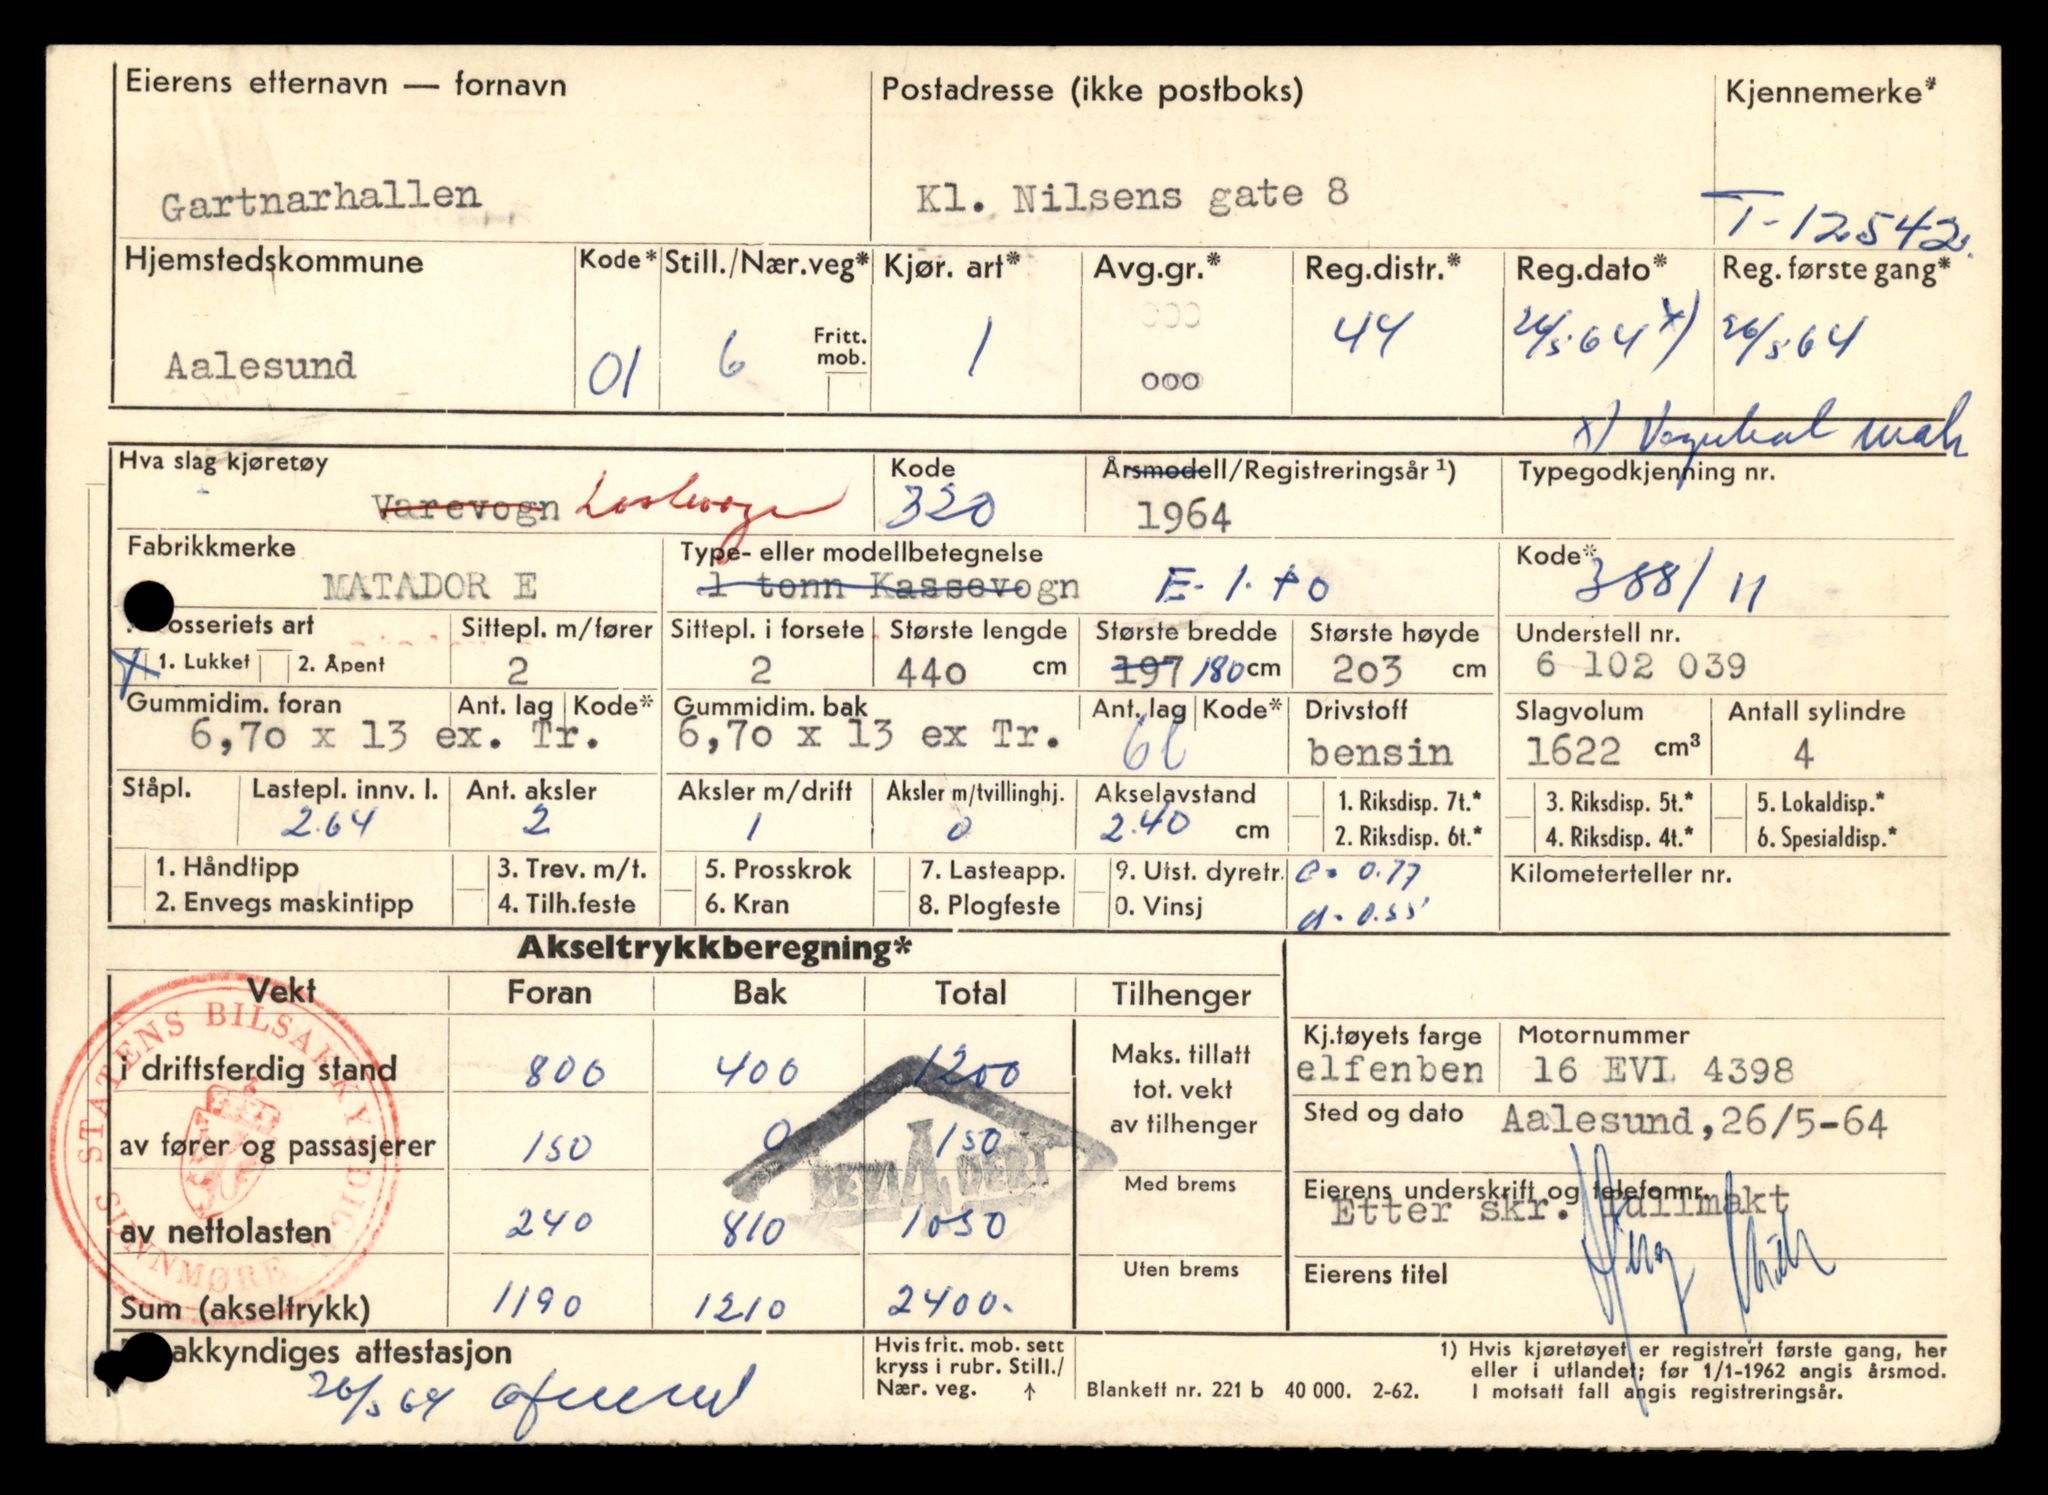 Eierens etternavn — fornavn Postadresse (ikke postboks) Kjennemerke*
Gartnarhallen Kl. Nilsens gate 8 T-12542.
Hjemstedskommune Kode* Still./Nær.veg* Kjør. art* Avg.gr.* Reg.distr.* Reg.dato* Reg. første gang*
Fritt. mob.
Aalesund 01 6 1 000 44 26/5-64 x) 26/5-64
x)
Hva slag kjøretøy Kode Årsmodell/Registreringsår ¹) Typegodkjenning nr.
Varevogn Lastevogn 320 1964
Fabrikkmerke Type- eller modellbetegnelse Kode*
MATADOR E 1 tonn Kassevogn 388/11
osseriets art Sittepl. m/fører Sittepl. i forsete Største lengde Største bredde Største høyde Understell nr.
X 1. Lukket 2. Åpent 2 2 440 cm 197 180 cm 203 cm 6 102 039
Gummidim. foran Ant. lag Kode* Gummidim. bak Ant. lag Kode* Drivstoff Slagvolum Antall sylindre
6,70 x 13 ex. Tr. 6,70 x 13 ex Tr. bensin 1622 cm³ 4
Ståpl. Lastepl. innv. l. Ant. aksler Aksler m/drift Aksler m/tvillinghj. Akselavstand 1. Riksdisp. 7t.* 3. Riksdisp. 5t.* 5. Lokaldisp.*
2.64 2 1 0 2.40 cm 2. Riksdisp. 6t.* 4. Riksdisp. 4t.* 6. Spesialdisp.*
1. Håndtipp 3. Trev. m/t. 5. Prosskrok 7. Lasteapp. 9. Utst. dyretr. c = 0.77 Kilometerteller nr.
2. Envegs maskintipp 4. Tilh.feste 6. Kran 8. Plogfeste 0. Vinsj d = 0.55
Akseltrykkberegning*
Vekt Foran Bak Total Tilhenger
STATENS BILSAKKYNDIGE SUNNMØRE
Kj.tøyets farge Motornummer
i driftsferdig stand 800 400 1200 Maks. tillatt tot. vekt av tilhenger elfenben 16 EVI 4398
Sted og dato Aalesund, 26/5-64
av fører og passasjerer 150 0 150
REVIDERT
Med brems Eierens underskrift og telefonnr.
Etter skr. fullmakt
av nettolasten 240 810 1050
Uten brems Eierens titel
Sum (akseltrykk) 1190 1210 2400.
akkyndiges attestasjon
26/5 64
Hvis frit. mob. sett
kryss i rubr. Still./
Nær. veg. ↑
Blankett nr. 221 b 40 000. 2-62.
1) Hvis kjøretøyet er registrert første gang, her
eller i utlandet; før 1/1-1962 angis årsmod.
I motsatt fall angis registreringsår.